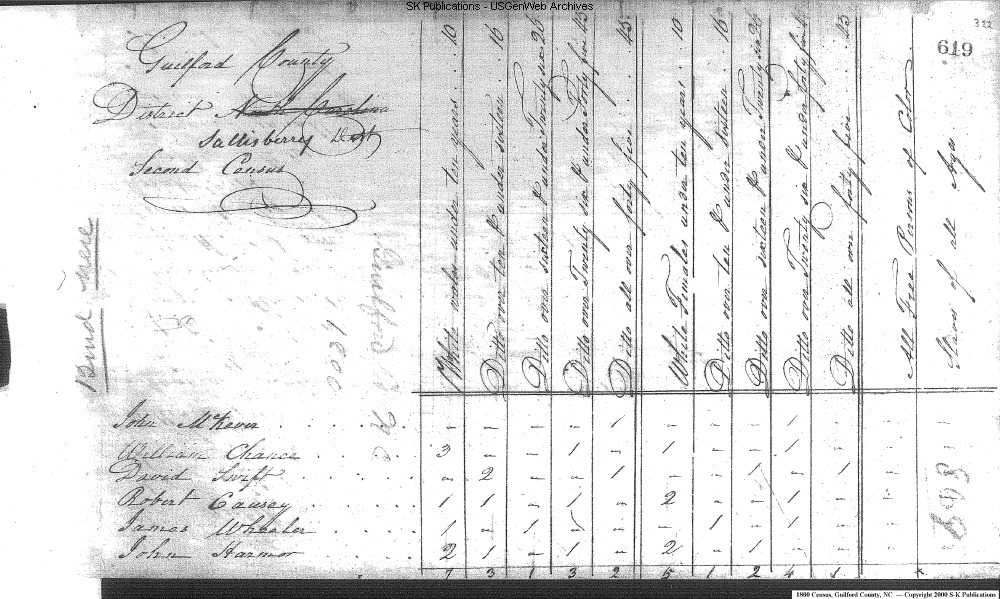 SK Publications - USGenWeb Archives
322
619
Guilford County
District North Carolina
Sallisberry Dist
Second Census
Bind here
White males under ten years . . 10
Ditto over ten & under sixteen . . 16
Ditto over sixteen & under Twenty six 26
Ditto over Twenty six & under Forty five 45
Ditto all over forty five . . 45
White Females under ten years . . 10
Ditto over ten & under sixteen . . 16
Ditto over sixteen & under Twenty six 26
Ditto over Twenty six & under forty five 45
Ditto all over forty five . . 45
All Free Persons of Color
Slaves of all Ages
John McKever . . . . . - - - - 1 - - - 1 - - -
William Chance . . . . 3 - - 1 - 1 - - 1 - - -
David Swift . . . . . - 2 - - 1 - - 1 - 1 - -
Robert Causey . . . . 1 1 - 1 - 2 - - 1 - - -
James Wheeler . . . . 1 - 1 1 - - 1 - 1 - - -
John Harmor . . . . 2 1 - 1 - 2 - 1 - - - -
7 3 1 3 2 5 1 2 4 1
1800 Census, Guilford County, NC — Copyright 2000 S-K Publications